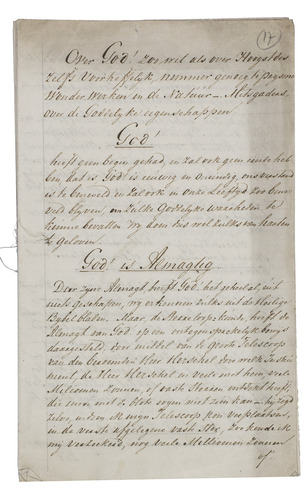 17
Over God! zoo wel als over Hoogst des
zelfs Voortreffelyk, nimmer genoeg te pryzene
Wonder Werken in de Natuur – Mitsgaders
over de Goddelyke eigenschappen
God!
heeft geen begin gehad, en zal ook geen einde heb
ben dat is God is eeuwig en oneindig, ons verstand
is te beneveld en zal ook in onze Leeftyd zoo bene
veld blyven, om zulke Goddelyke waarheden te
kunnen bevatten wy doen dus wel zulks van harten
te gelooven.
God! is Almagtig
Door zyne Almagt heeft God het geheel al, uit
niets geschapen, wy erkennen zulks uit de Heilige
Bybel bladen. Maar, de Starrekunde, heeft de
Almagt van God op een ontegensprekelyk bewys
daargesteld, door middel van de groote Telescoop
van den beroemden Heer Herschel door welk
heeft de Heer Herschel en veele met hem, veele
Millioenen Zonnen, of vaste Starren ontdekt heeft,
die men met 't blote oogen niet zien kan – hy zegt
zelve, indien ik myn Telescoop kon verplaatsen,
in de verste afgelegene vaste Star, zoo houde ik
my verzekerd, nog veele Millioenen Zonnen
of